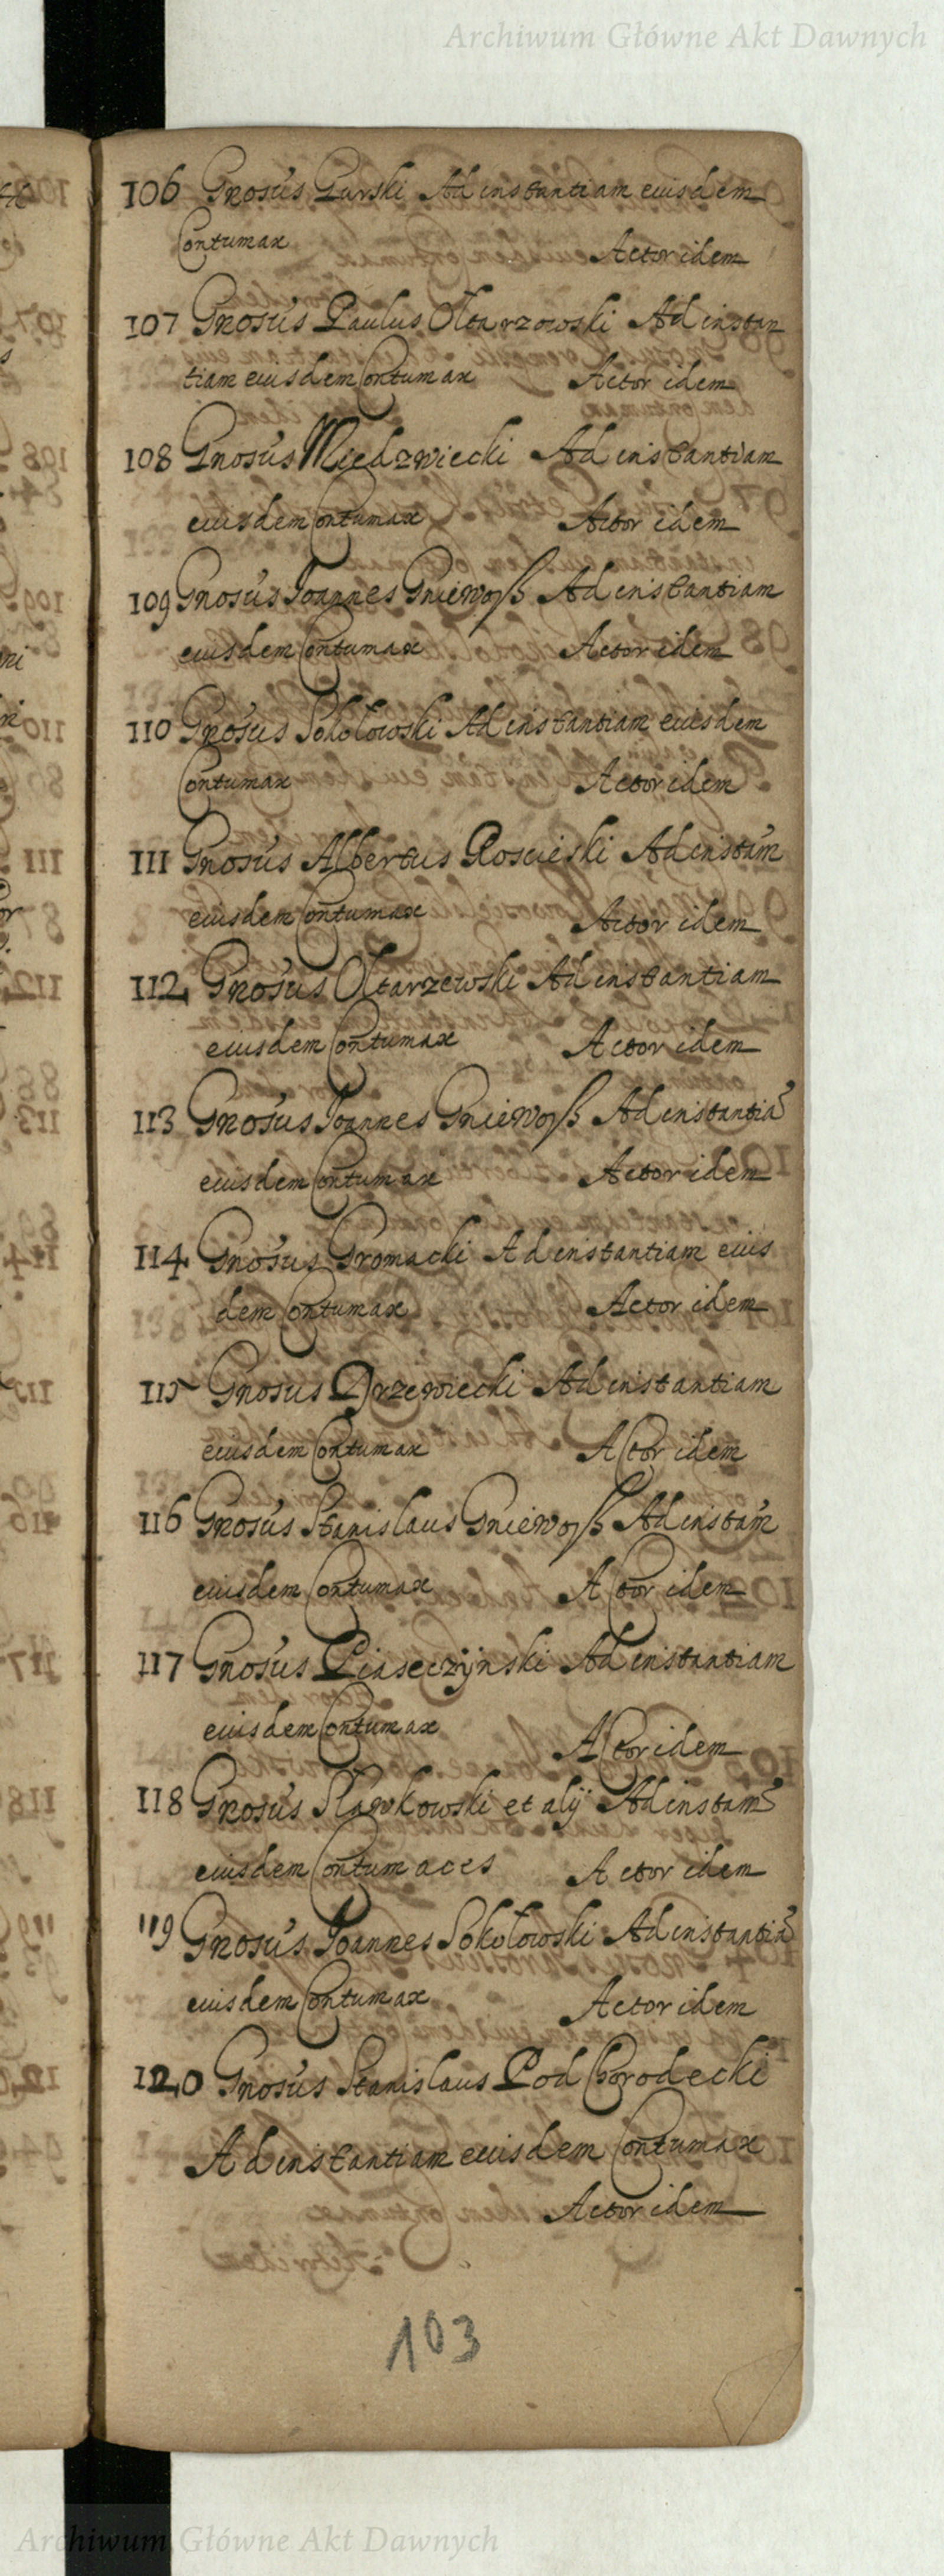 Archiwum Główne Akt Dawnych
106 Gnosus Gurski Ad instantiam euisdem
Contumax Actor idem
107 Gnosus Paulus Oltarzowski Ad instan
tiam euisdem Contumax Actor idem
108 Gnosus Miedzwiecki Ad instantiam
euisdem Contumax Actor idem
109 Gnosus Joannes Gniewoſz Ad instantiam
euisdem Contumax Actor idem
110 Gnosus Sokołowski Ad instantiam euisdem
Contumax Actor idem
111 Gnosus Albertus Roscieski Ad instam
euisdem Contumax Actor idem
112 Gnosus Oltarzewski Ad instantiam
euisdem Contumax Actor idem
113 Gnosus Joannes Gniewoſz Ad instantia
euisdem Contumax Actor idem
114 Gnosus Gromacki Ad instantiam euis
dem Contumax Actor idem
115 Gnosus Drzewiecki Ad instantiam
euisdem Contumax Actor idem
116 Gnosus Stanislaus Gniewoſz Ad instam
euisdem Contumax Actor idem
117 Gnosus Piaseczÿnski Ad instantiam
euisdem Contumax Actor idem
118 Gnosus Slawkowski et alÿ Ad instam
euisdem Contumaces Actor idem
119 Gnosus Joannes Sokołowski Ad instantia
euisdem Contumax Actor idem
120 Gnosus Stanislaus Pod Horodecki
Ad instantiam euisdem Contumax
Actor idem
103
Archiwum Główne Akt Dawnych